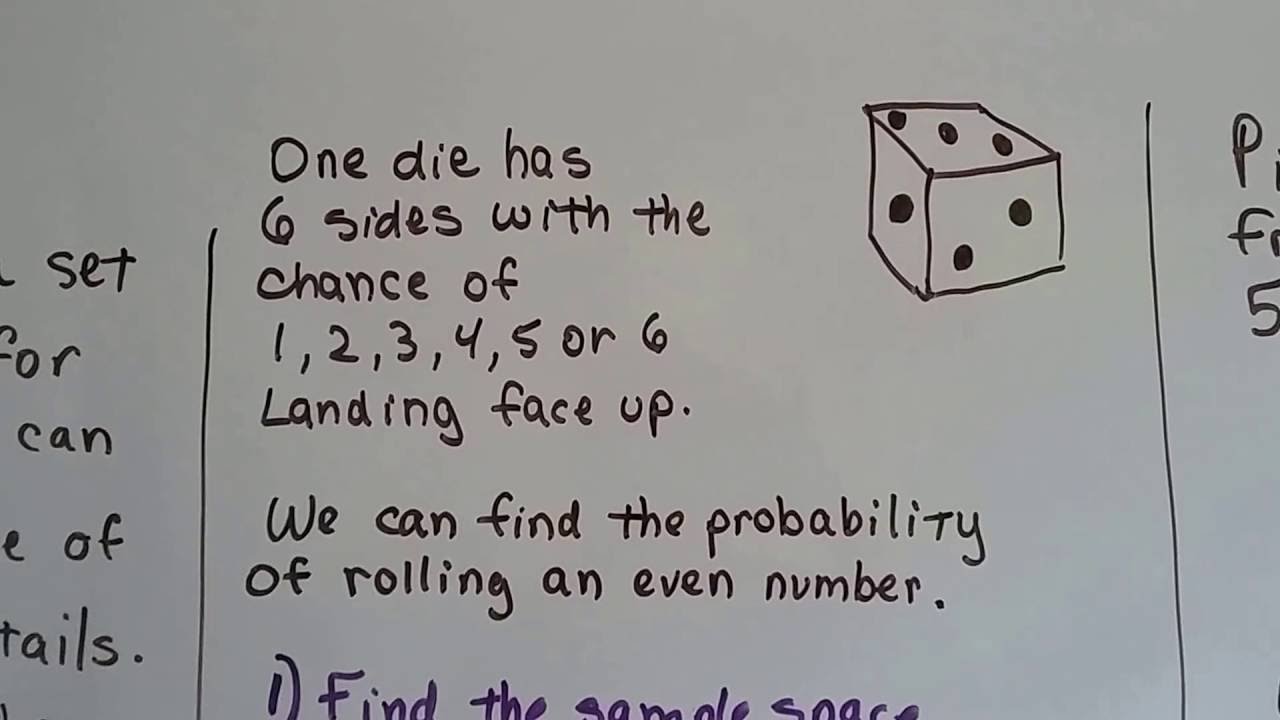 set
for
can
e of
tails.
One die has
6 sides with the
chance of
1, 2, 3, 4, 5 or 6
Landing face up.
We can find the probability
of rolling an even number.
1) Find the sample space
P
fr
5